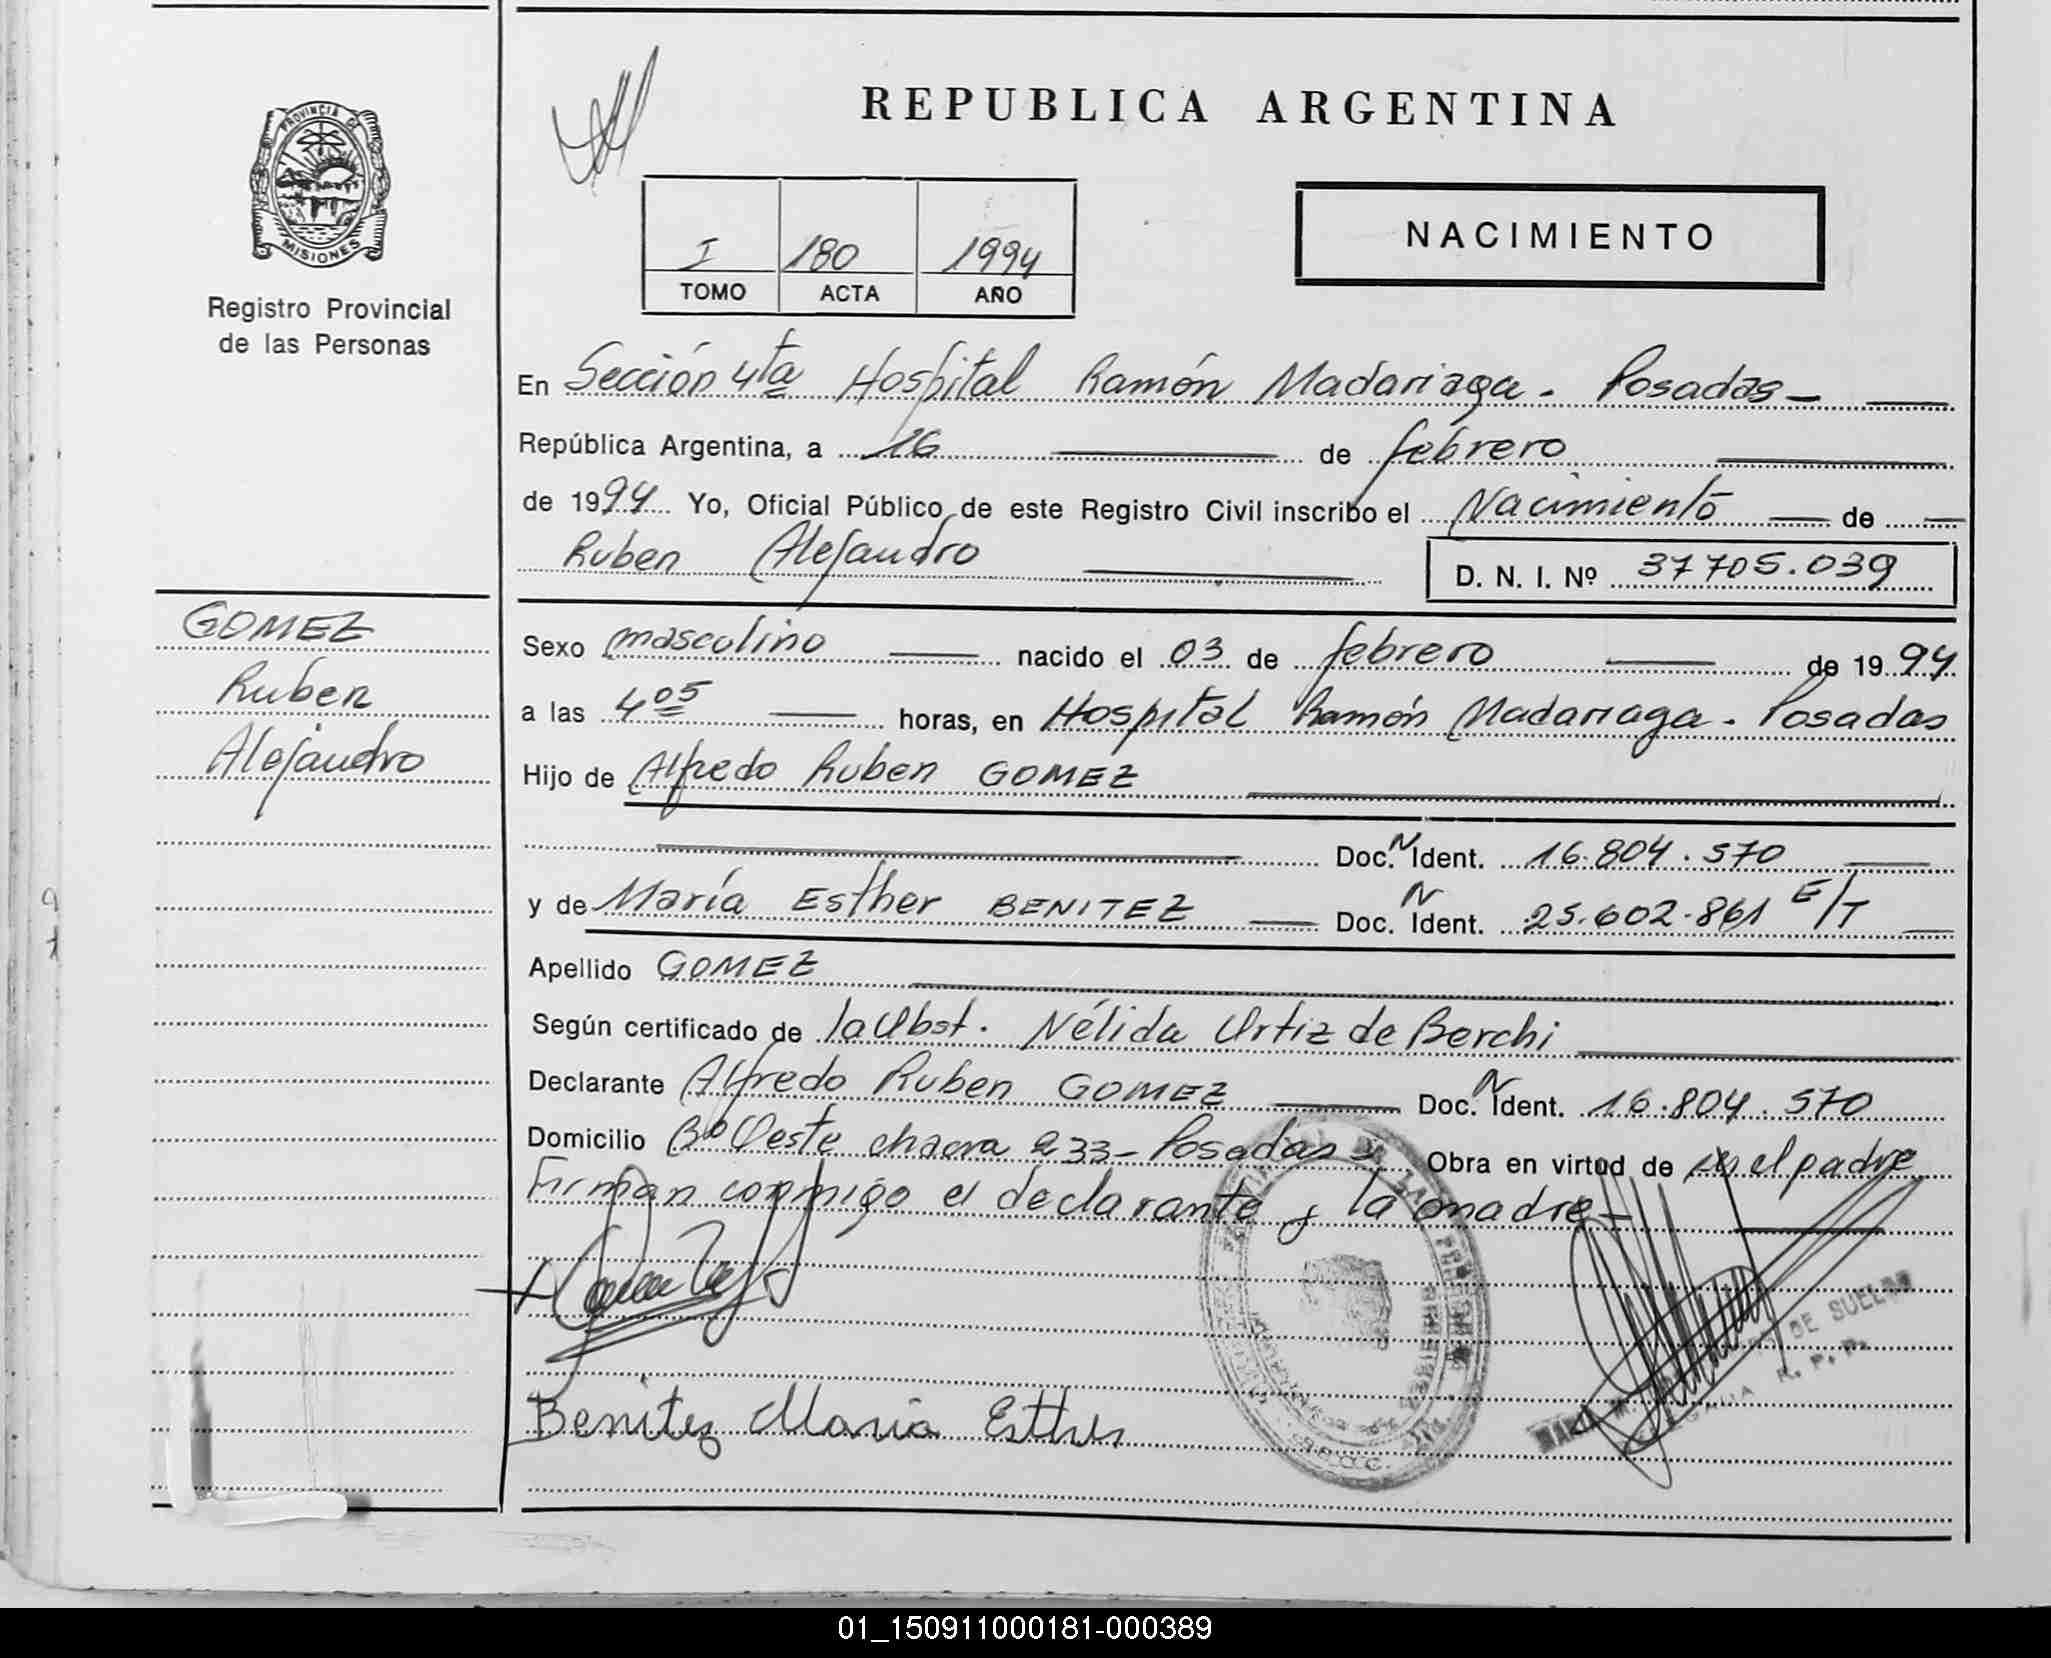 REPUBLICA ARGENTINA
PROVINCIA DE
MISIONES
Registro Provincial
de las Personas
I 180 1994
TOMO ACTA AÑO
NACIMIENTO
En Sección 4ta Hospital Ramón Madariaga. Posadas
República Argentina, a 16 de febrero
de 1994 Yo, Oficial Público de este Registro Civil inscribo el Nacimiento de
Ruben Alejandro D. N. I. Nº 37705.039
GOMEZ
Ruben
Alejandro
Sexo masculino nacido el 03 de febrero de 1994
a las 4 05 horas, en Hospital Ramón Madariaga. Posadas
Hijo de Alfredo Ruben GOMEZ
Doc. N Ident. 16.804.570
y de María Esther BENITEZ Doc. N Ident. 25.602.861 E/T
Apellido GOMEZ
Según certificado de la Obst. Nélida Ortiz de Berchi
Declarante Alfredo Ruben GOMEZ Doc. N Ident. 16.804.570
Domicilio Bº Oeste chacra 233 - Posadas Obra en virtud de el padre
Firman conmigo el declarante y la madre
DE SUELDO
R. P. P.
Benitez Maria Esther
01_150911000181-000389